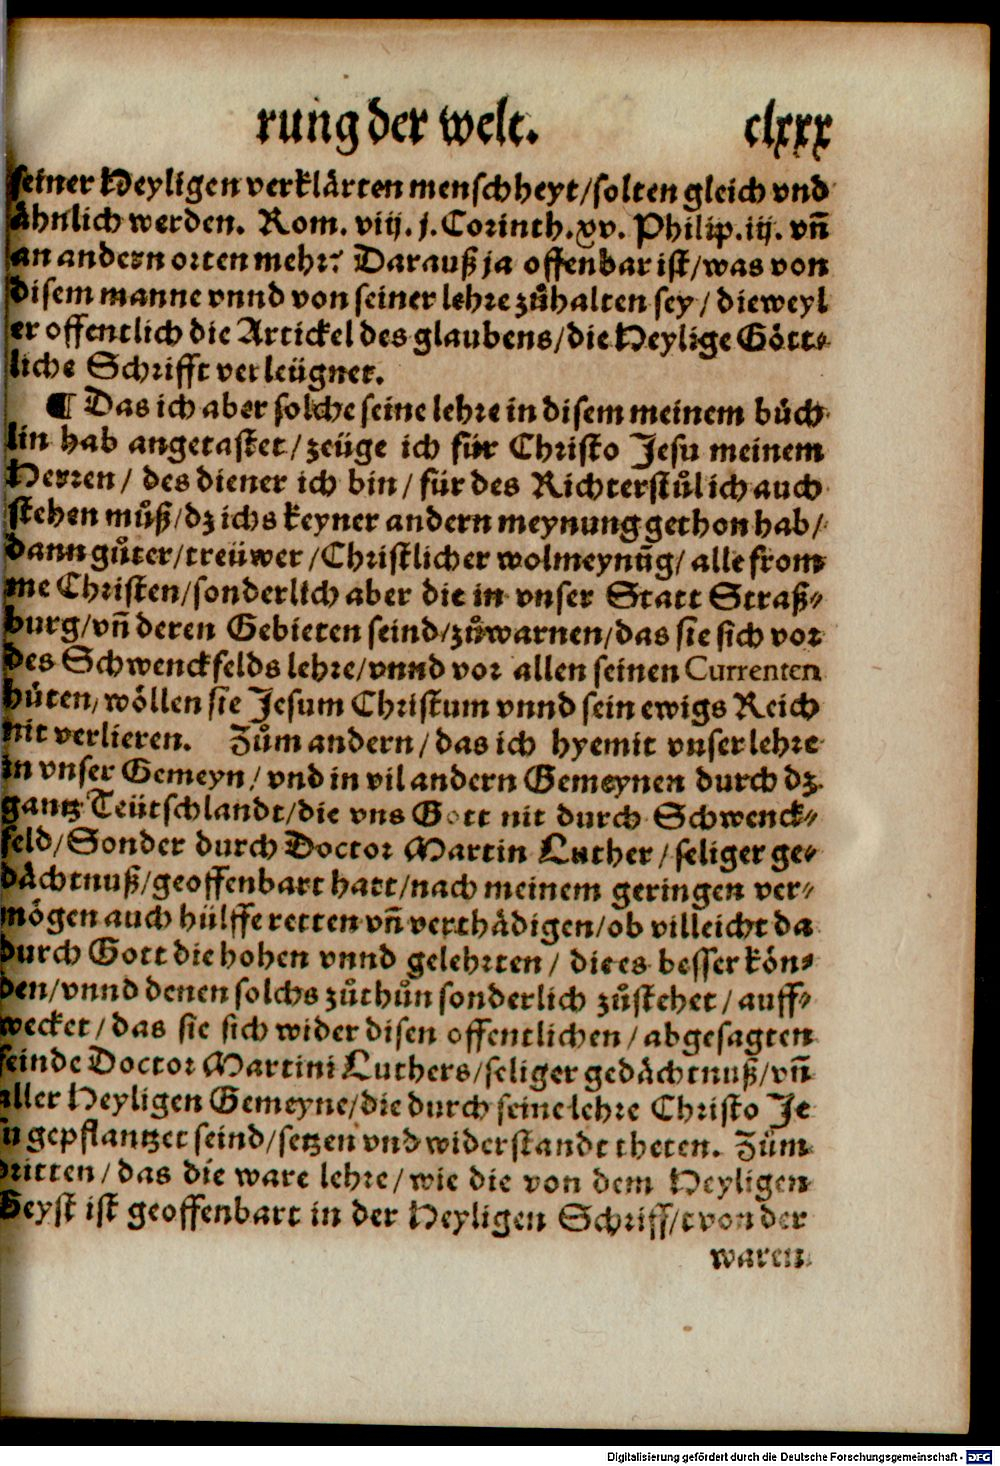 rung der welt. clxxx
seiner Heyligen verklärten menschheyt/solten gleich vnd
ähnlich werden. Rom. viij. j. Corinth. xv. Philip. iij. vñ
an andern orten mehr? Darauß ja offenbar ist/was von
disem manne vnnd von seiner lehre zůhalten sey/ dieweyl
er offentlich die Artickel des glaubens/die Heylige Gött⸗
liche Schrifft verleügnet.
¶ Das ich aber solche seine lehre in disem meinem bůch
lin hab angetastet/ zeüge ich für Christo Jesu meinem
Herren/ des diener ich bin/ für des Richterstůl ich auch
stehen můß/dz ichs keyner andern meynung gethon hab/
dann gůter/treüwer/Christlicher wolmeynūg/ alle from
me Christen/sonderlich aber die in vnser Statt Straß⸗
burg/vñ deren Gebieten seind/zůwarnen/das sie sich vor
des Schwenckfelds lehre/vnnd vor allen seinen Currenten
hüten/wöllen sie Jesum Christum vnnd sein ewigs Reich
nit verlieren. Zům andern/das ich hyemit vnser lehre
in vnser Gemeyn/ vnd in vil andern Gemeynen durch dz
gantz Teütschlandt/die vns Gott nit durch Schwenck⸗
feld/Sonder durch Doctor Martin Luther/seliger ge⸗
dächtnuß/geoffenbart hatt/nach meinem geringen ver⸗
mögen auch hülffe retten vñ verthädigen/ob villeicht da
durch Gott die hohen vnnd gelehrten/ die es besser kön⸗
den/vnnd denen solchs zůthůn sonderlich zůstehet/auff⸗
wecket/das sie sich wider disen offentlichen/abgesagten
feinde Doctor Martini Luthers/seliger gedächtnuß/vñ
aller Heyligen Gemeyne/die durch seine lehre Christo Je
su gepflantzet seind/setzen vnd widerstandt theten. Zům
dritten/das die ware lehre/wie die von dem Heyligen
Geyst ist geoffenbart in der Heyligen Schriff/t von der
waren
Digitalisierung gefördert durch die Deutsche Forschungsgemeinschaft - DFG